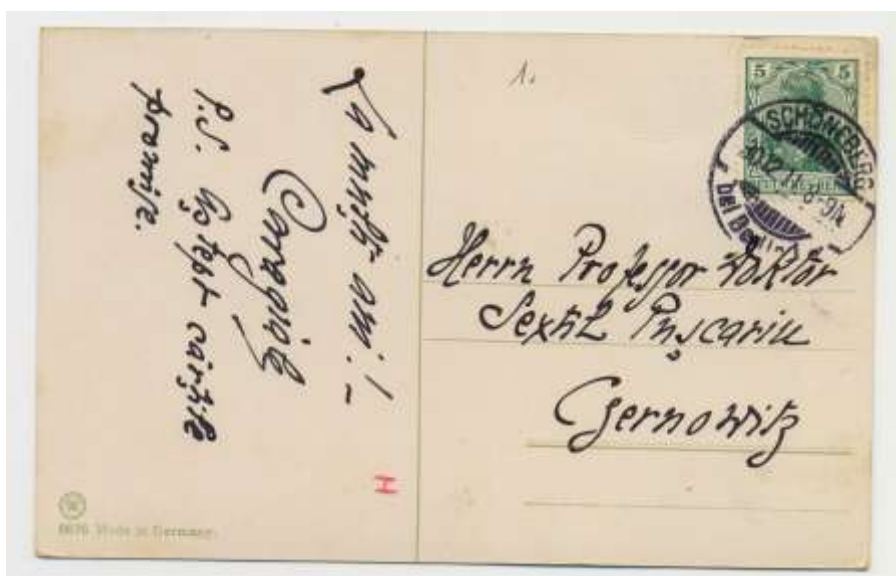 La mulți ani! –
Caragiale
P.S. Aștept cărțile
promise.
H
Made in Germany
1.
5 5
SCHÖNEBERG
bei Berlin
Herrn Professor Doktor
Sextil Pușcariu
Czernowitz